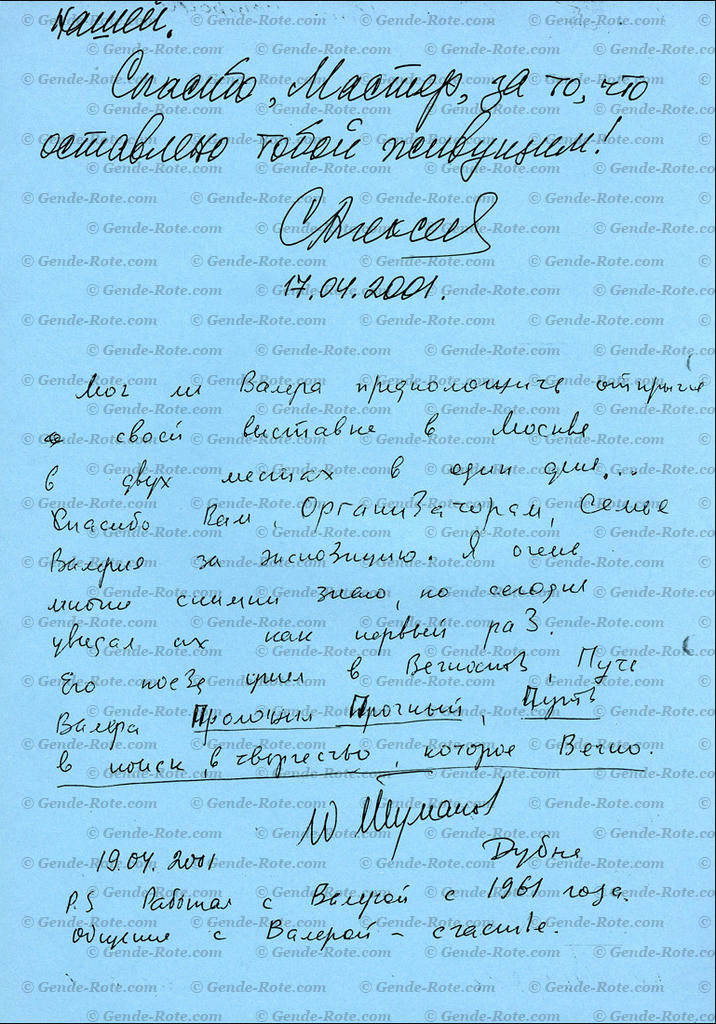 нашей.
Спасибо, Мастер, за то, что
оставлено тобой живущим!
САлексеев
17.04.2001.
Мог ли Валера предположить открытие
своей выставке в Москве
в двух местах в один день...
Спасибо Вам, Организаторам, Семье
Валерия за экспозицию. Я очень
многие снимки знаю, но сегодня
увидал их как первый раЗ.
Его поезд ушел в Вечность, Путь
Валера Проложил Прочный, Путь
в поиск, в творчество, которое Вечно.
Ю Шуманов
19.04.2001 Дубна
P.S Работал с Валерой с 1961 года.
общение с Валерой – счастье.
© Gende-Rote.com